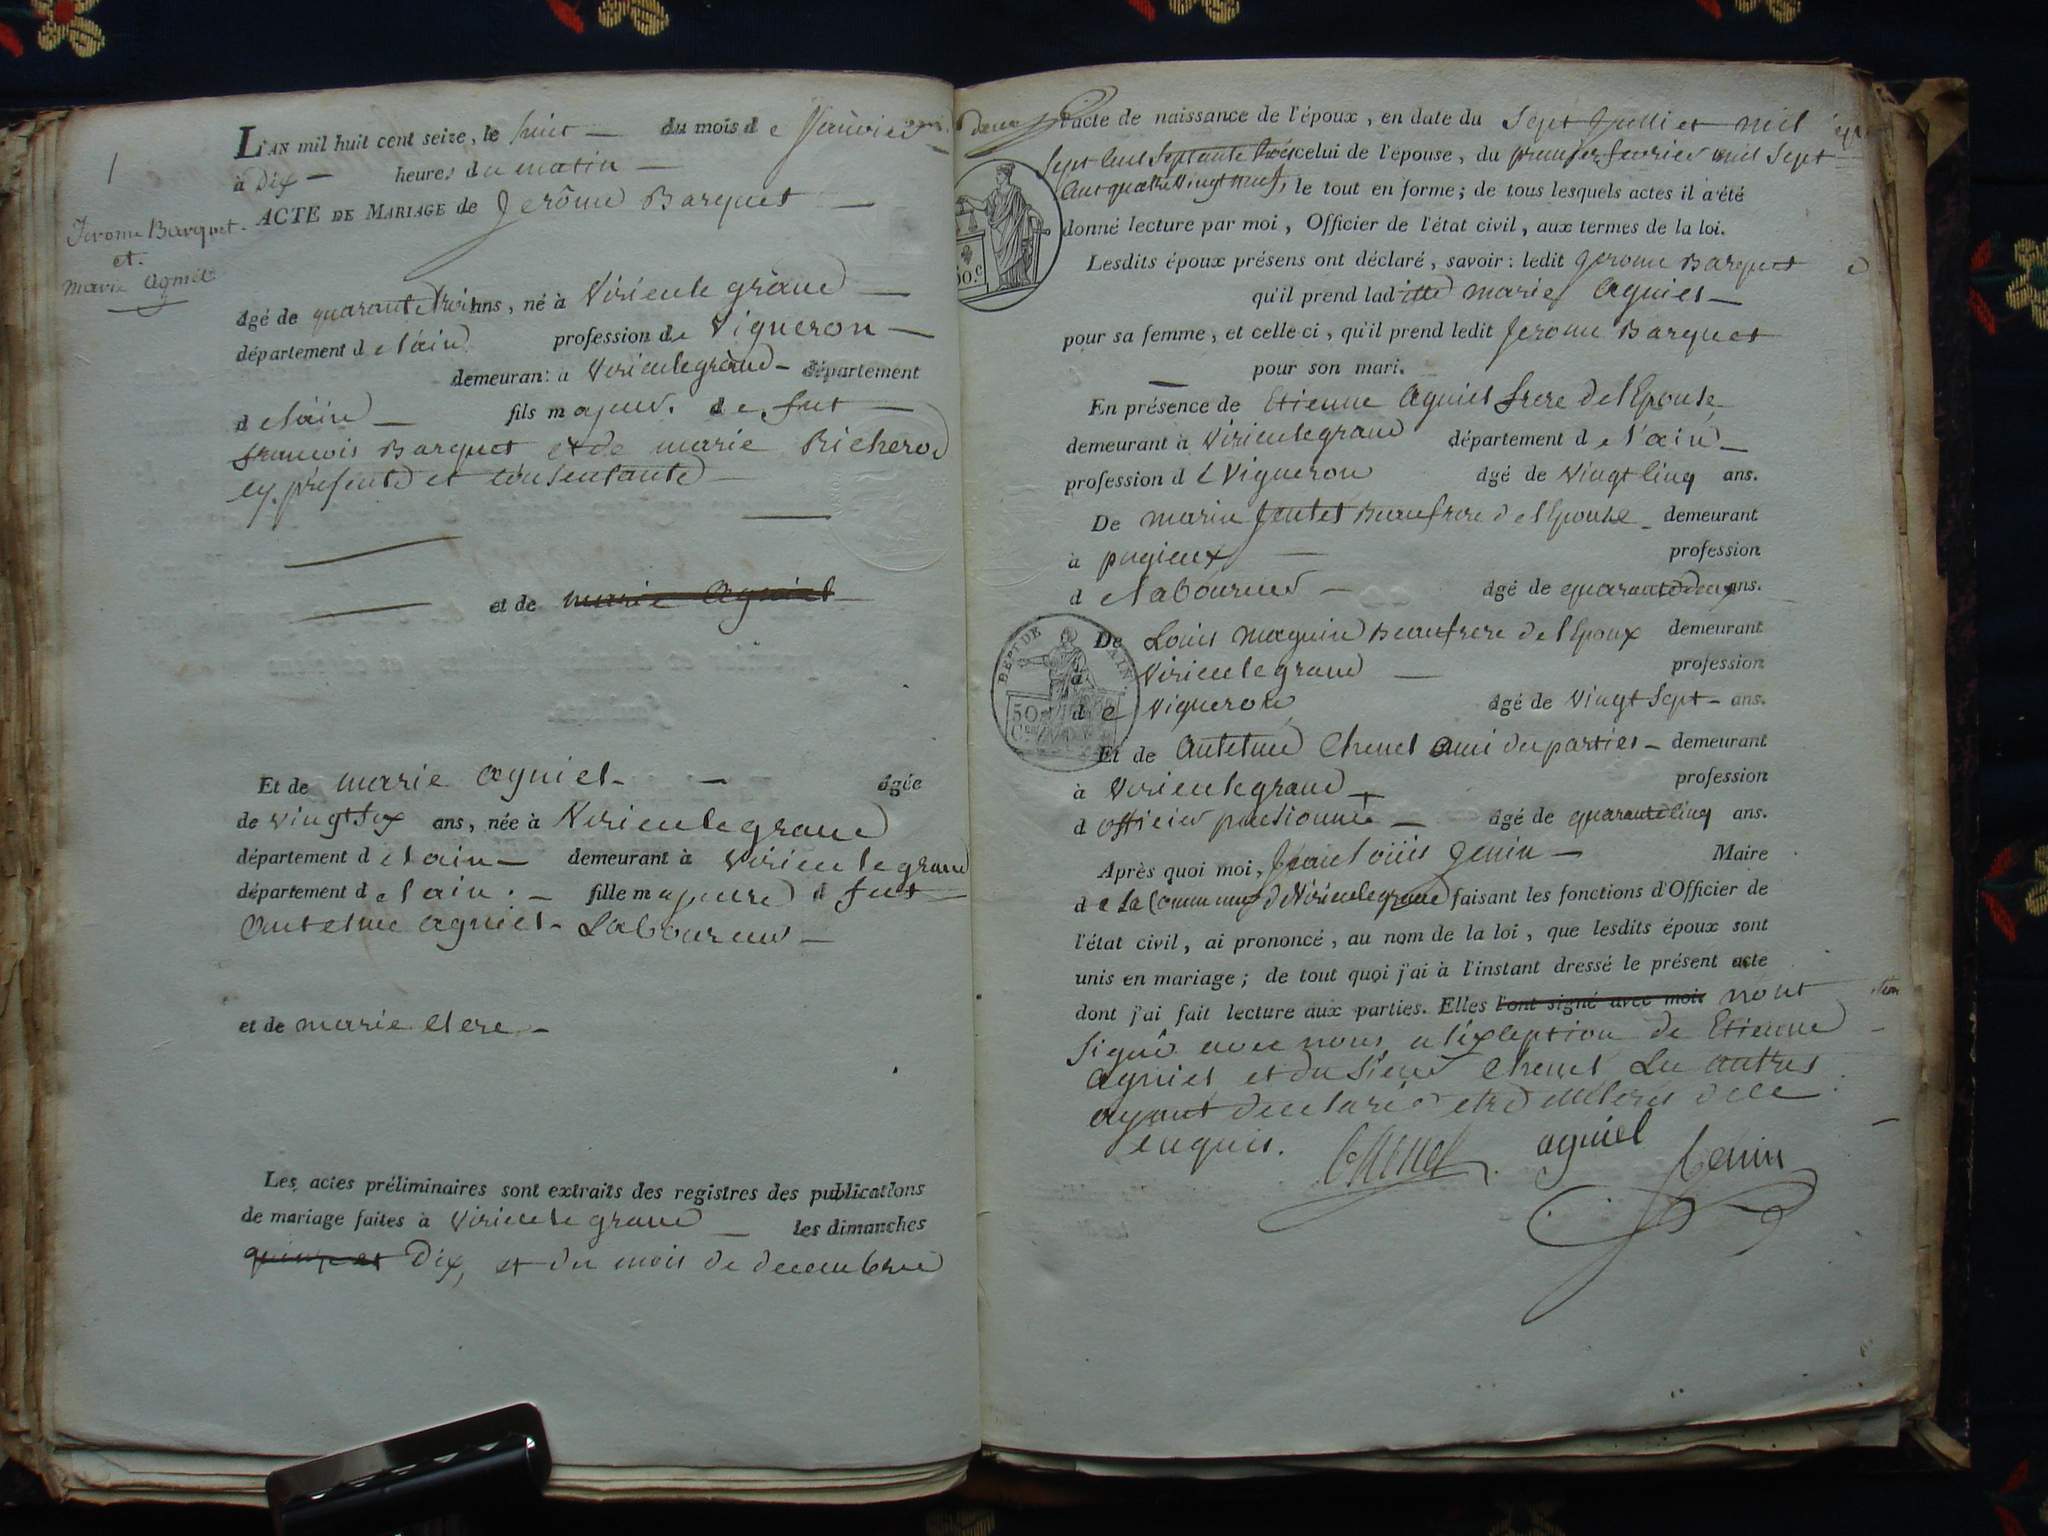 1
Jerome Barquet
et
marie agniel
L'AN mil huit cent seize, le huit du mois de Janvier
à Dix heures du matin
ACTE DE MARIAGE de Jerôme Barquet
âgé de quarante trois ans, né à Virieu le grand
département de lain profession de Vigneron
demeurant à Virieulegrand département
de lain fils majeur de fut
francois Barquet et de marie Richerod
cy présente et consentante
et de marie agniel
Et de marie agniel âgée
de vingt six ans, née à Virieu le grand
département de lain demeurant à Virieu le grand
département de lain fille majeure d fut
antelme agniel Laboureur
et de marie Clere
Les actes préliminaires sont extraits des registres des publications
de mariage faites à Virieu le grand les dimanches
quinze et Dix, et du mois de decembre
l'acte de naissance de l'époux, en date du Sept Juillet mil
Sept Cent Septante trois celui de l'épouse, du premier fevrier mil Sept
Cent quatre Vingt neuf, le tout en forme; de tous lesquels actes il a été
donné lecture par moi, Officier de l'état civil, aux termes de la loi.
Lesdits époux présens ont déclaré, savoir: ledit Jerome Barquet
qu'il prend ladite marie Agniel
pour sa femme, et celle ci, qu'il prend ledit Jerome Barquet
pour son mari.
En présence de Etienne Agniel frere de l'Epouse
demeurant à Virieulegrand département de l'ain
profession de Vigneron âgé de Vingt Cinq ans.
De marin Jentet Beaufrere de l'Epouse demeurant
à pugieux profession
de laboureur âgé de quarante deux ans.
DEPT DE L'AIN
50
De Louis maguin Beaufrere de l'Epoux demeurant
à Virieulegrand profession
de Vigneron âgé de Vingt Sept ans.
Et de Antelme Chenel ami des parties demeurant
à Virieulegrand profession
d officier pensionné âgé de quarante Cinq ans.
Après quoi moi, Jean louis Genin Maire
de la Commune de Virieulegrand faisant les fonctions d'Officier de
l'état civil, ai prononcé, au nom de la loi, que lesdits époux sont
unis en mariage; de tout quoi j'ai à l'instant dressé le présent acte
dont j'ai fait lecture aux parties. Elles l'ont signé avec moi nont
Signé avec nous a léxception de Etienne
Agniel et du Sieur Chenel Les autres
ayant declaré etre illiterés de ce
enquis. Chenel agniel Genin